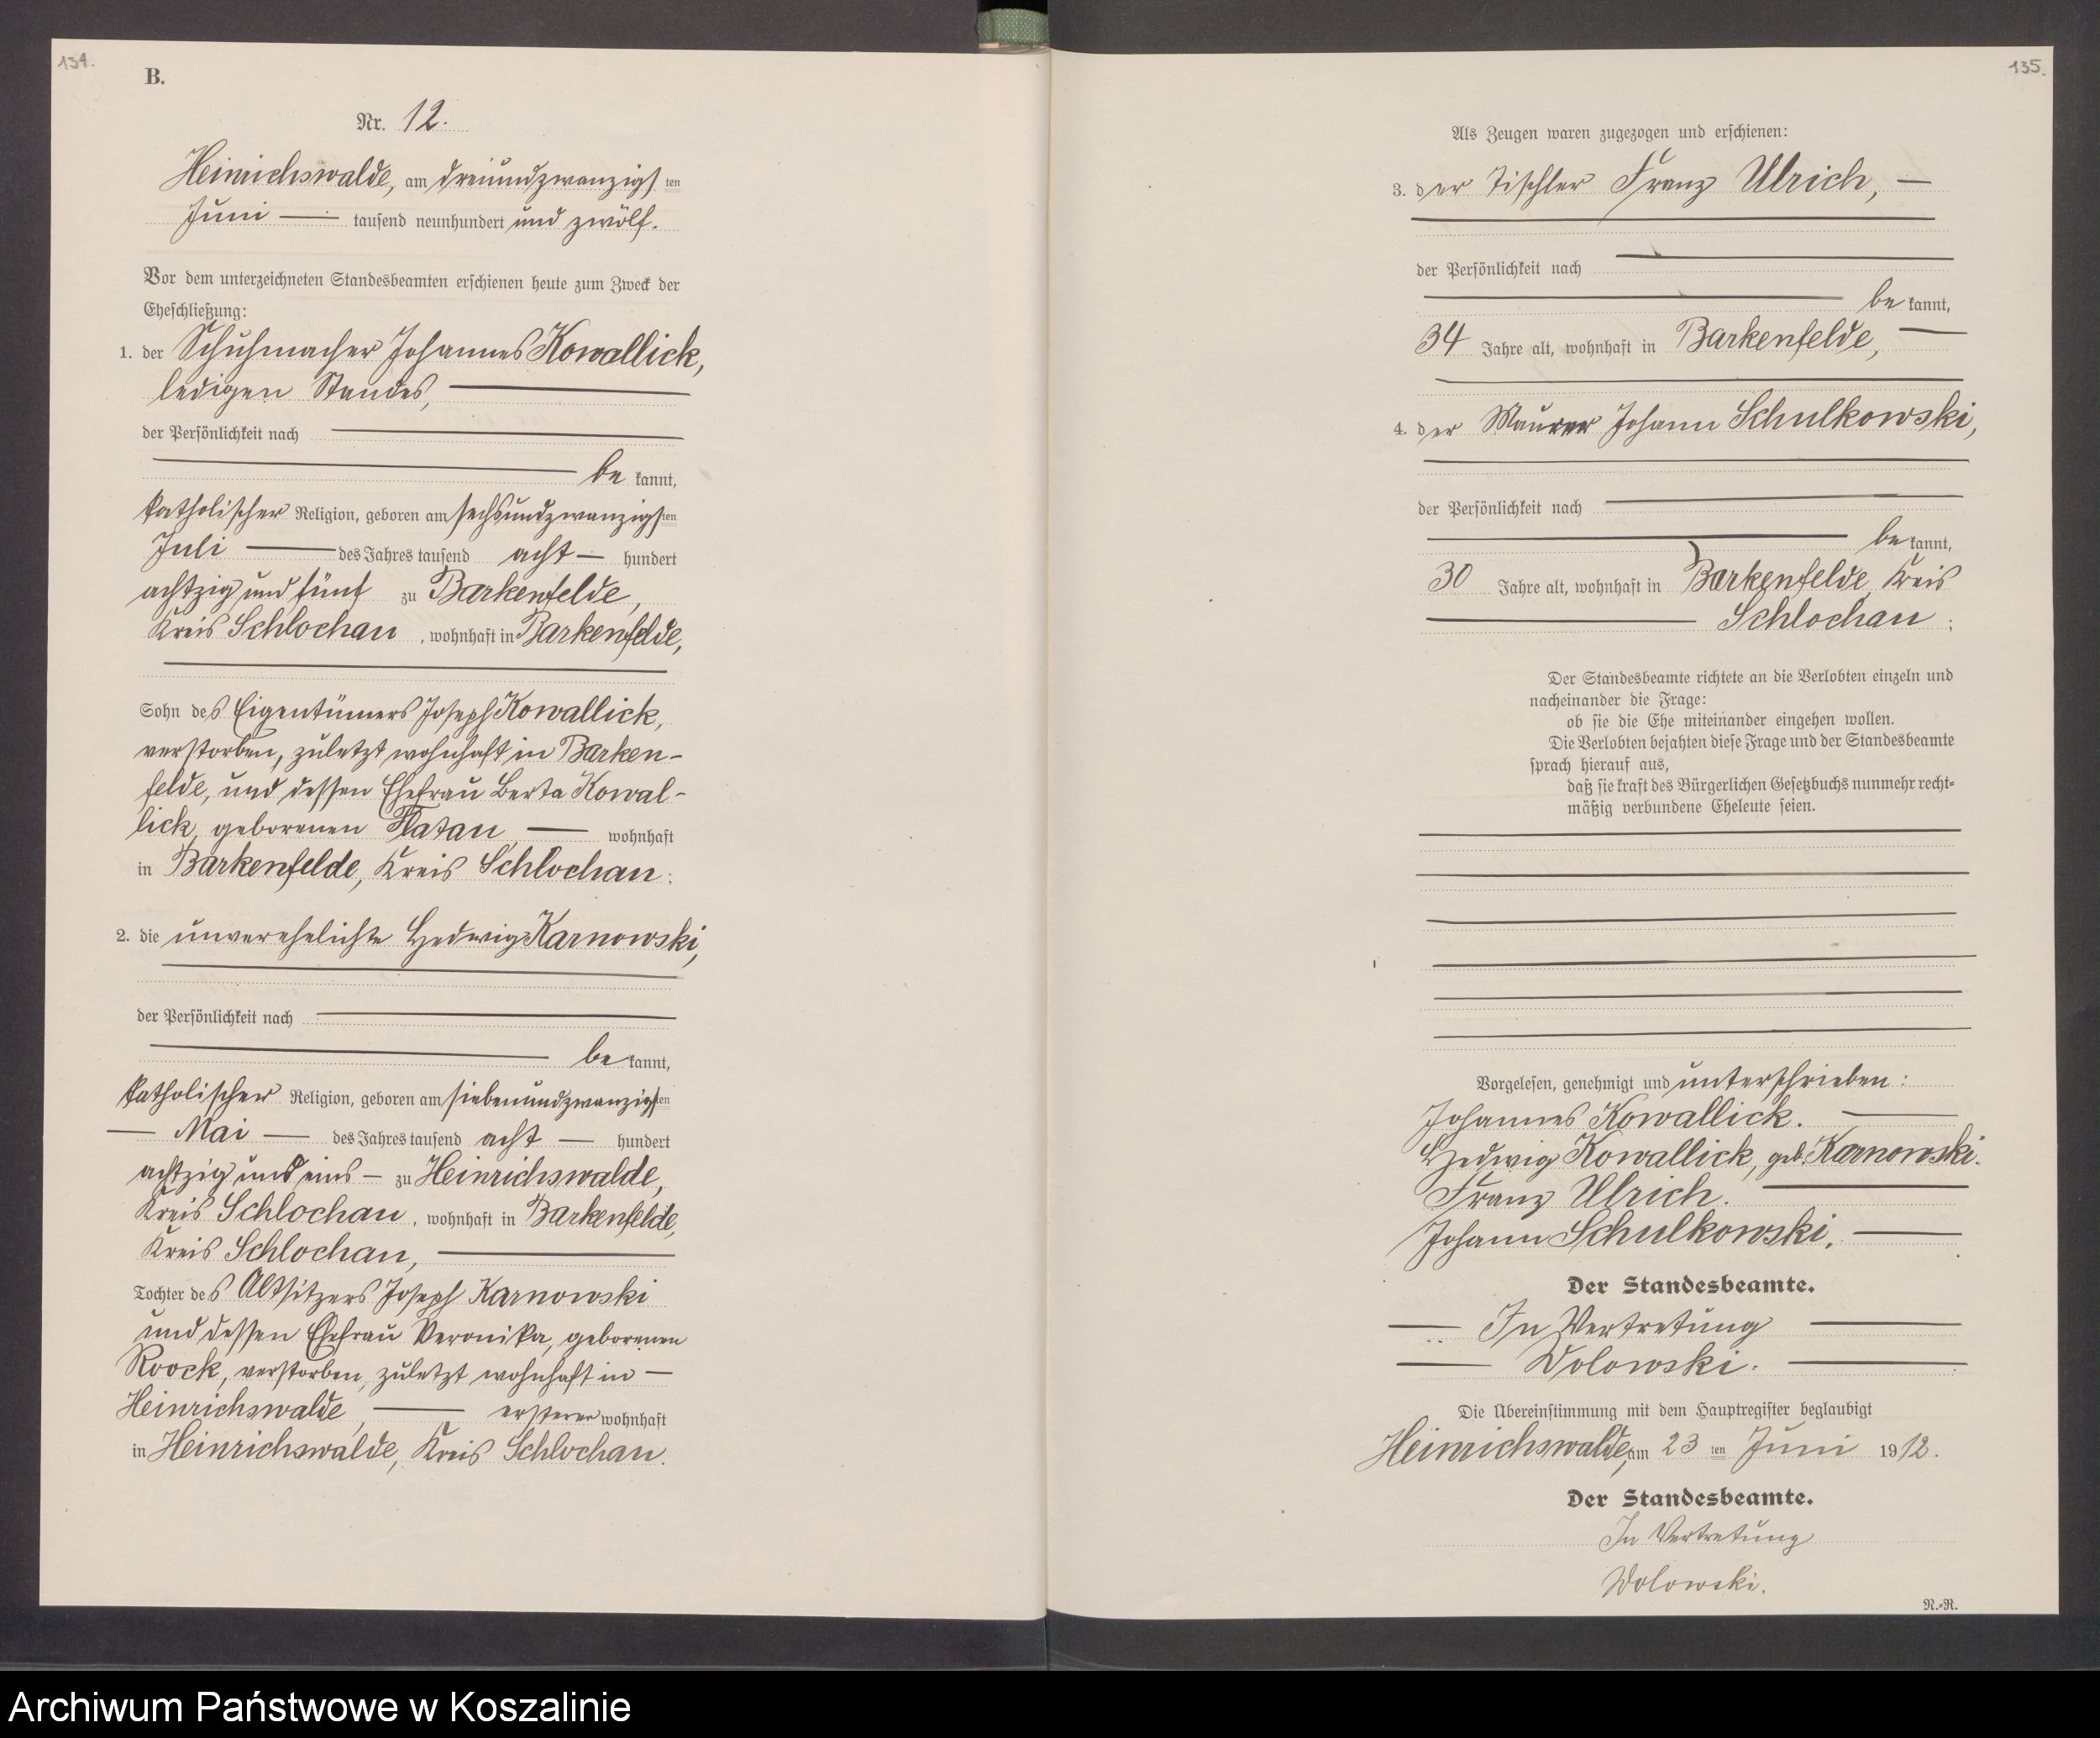 134.
B.
Nr. 12.
Heinrichswalde, am dreiundzwanzigsten
Juni — tausend neunhundert und zwölf.
Vor dem unterzeichneten Standesbeamten erschienen heute zum Zweck der
Eheschließung:
1. der Schuhmacher Johannes Kowallick,
ledigen Standes,
der Persönlichkeit nach
be kannt,
katholischer Religion, geboren am sechsundzwanzigsten
Juli — des Jahres tausend acht — hundert
achtzig und fünf zu Barkenfelde,
Kreis Schlochau, wohnhaft in Barkenfelde,
Sohn des Eigentümers Joseph Kowallick,
verstorben, zuletzt wohnhaft in Barken-
felde, und dessen Ehefrau Berta Kowal-
lick, geborenen Flatau, — wohnhaft
in Barkenfelde, Kreis Schlochau.
2. die unverehelichte Hedwig Karnowski,
der Persönlichkeit nach
be kannt,
katholischer Religion, geboren am siebenundzwanzigsten
— Mai — des Jahres tausend acht — hundert
achtzig und eins — zu Heinrichswalde,
Kreis Schlochau, wohnhaft in Barkenfelde,
Kreis Schlochau,
Tochter des Altsitzers Joseph Karnowski
und dessen Ehefrau Veronika, geborenen
Roock, verstorben, zuletzt wohnhaft in —
Heinrichswalde, — ersterer wohnhaft
in Heinrichswalde, Kreis Schlochau.
135.
Als Zeugen waren zugezogen und erschienen:
3. der Tischler Franz Ulrich, —
der Persönlichkeit nach
be kannt,
34 Jahre alt, wohnhaft in Barkenfelde, —
4. der Maurer Johann Schulkowski,
der Persönlichkeit nach
be kannt,
30 Jahre alt, wohnhaft in Barkenfelde, Kreis
Schlochau.
Der Standesbeamte richtete an die Verlobten einzeln und
nacheinander die Frage:
ob sie die Ehe miteinander eingehen wollen.
Die Verlobten bejahten diese Frage und der Standesbeamte
sprach hierauf aus,
daß sie kraft des Bürgerlichen Gesetzbuchs nunmehr recht-
mäßig verbundene Eheleute seien.
Vorgelesen, genehmigt und unterschrieben:
Johannes Kowallick. —
Hedwig Kowallick, geb. Karnowski.
Franz Ulrich. —
Johann Schulkowski. —
Der Standesbeamte.
— In Vertretung —
— Dolowski. —
Die Übereinstimmung mit dem Hauptregister beglaubigt
Heinrichswalde, am 23 ten Juni 1912.
Der Standesbeamte.
In Vertretung
Dolowski.
N.-R.
Archiwum Państwowe w Koszalinie